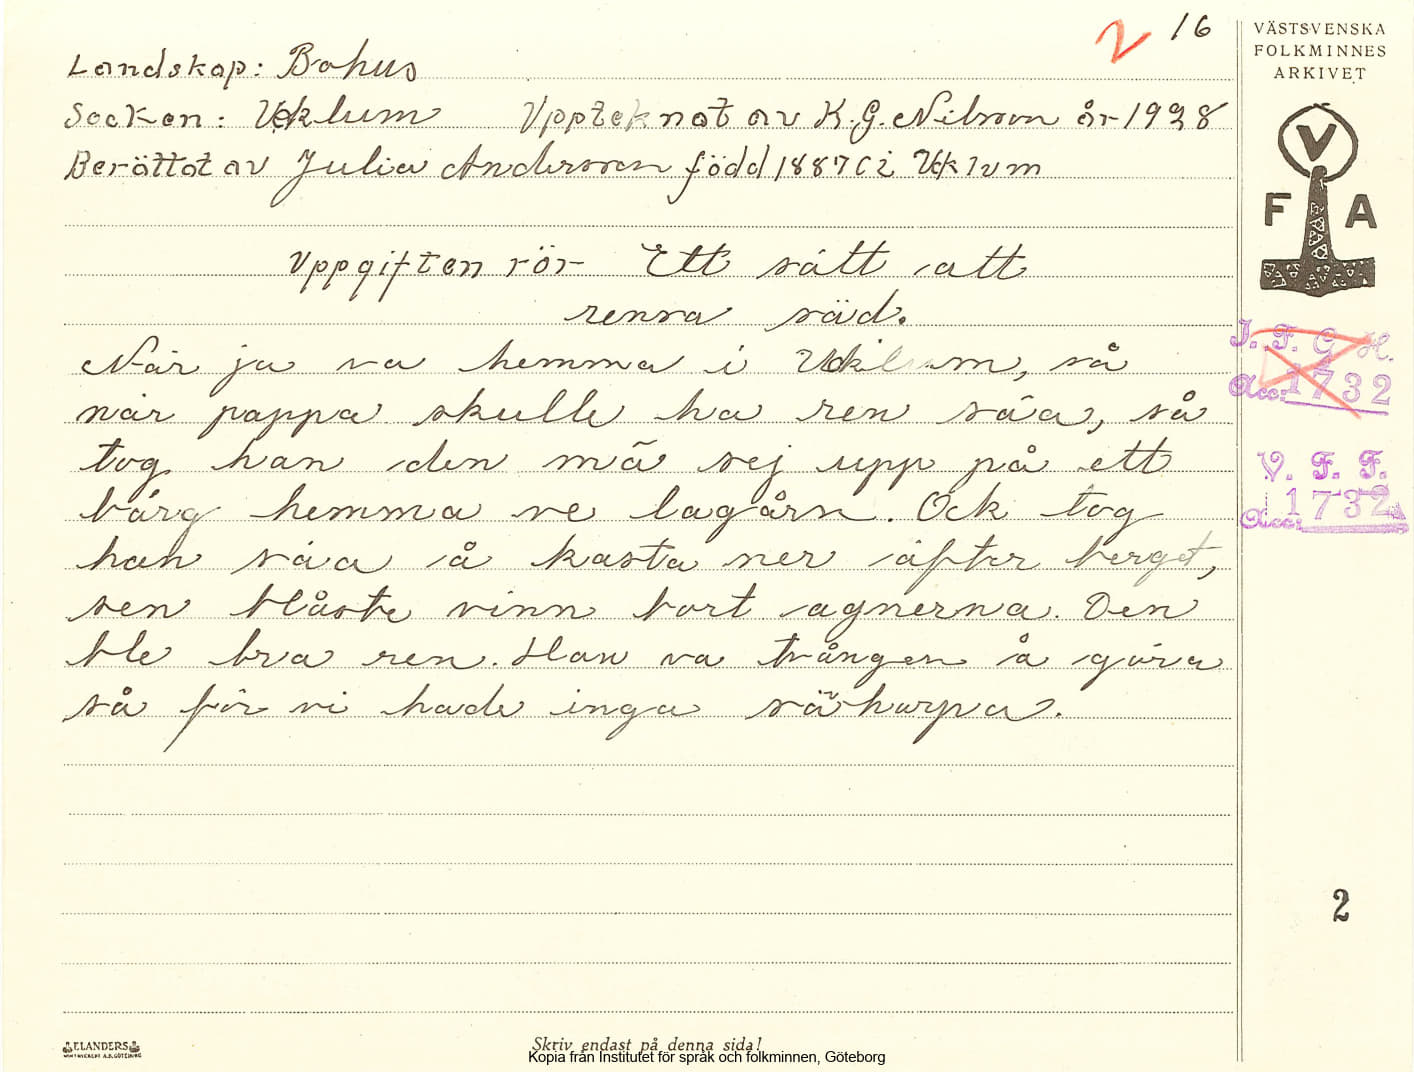 2 16
VÄSTSVENSKA
FOLKMINNES
ARKIVET
V
F A
Landskap: Bohus
Socken: Ucklum Upptecknat av K.G. Nilsson år 1928
Berättat av Julia Andersson född 1887 i Ucklum
Uppgiften rör Ett sätt att
rensa säd.
När ja va hemma i Ucklum, så
når pappa skulle ha ren säa, så
tog han den mä sej upp på ett
bärg hemma ve lagårn. Ock tog
han säa å kasta ner äfter berget,
sen blåste vinn bort agnerna. Den
ble bra ren. Han va tvången å göra
så för vi hade inga säharpa.
I. F. G. H.
Acc: 1732
V. F. F.
Acc: 1732
2
ELANDERS
Skriv endast på denna sida!
Kopia från Institutet för språk och folkminnen, Göteborg